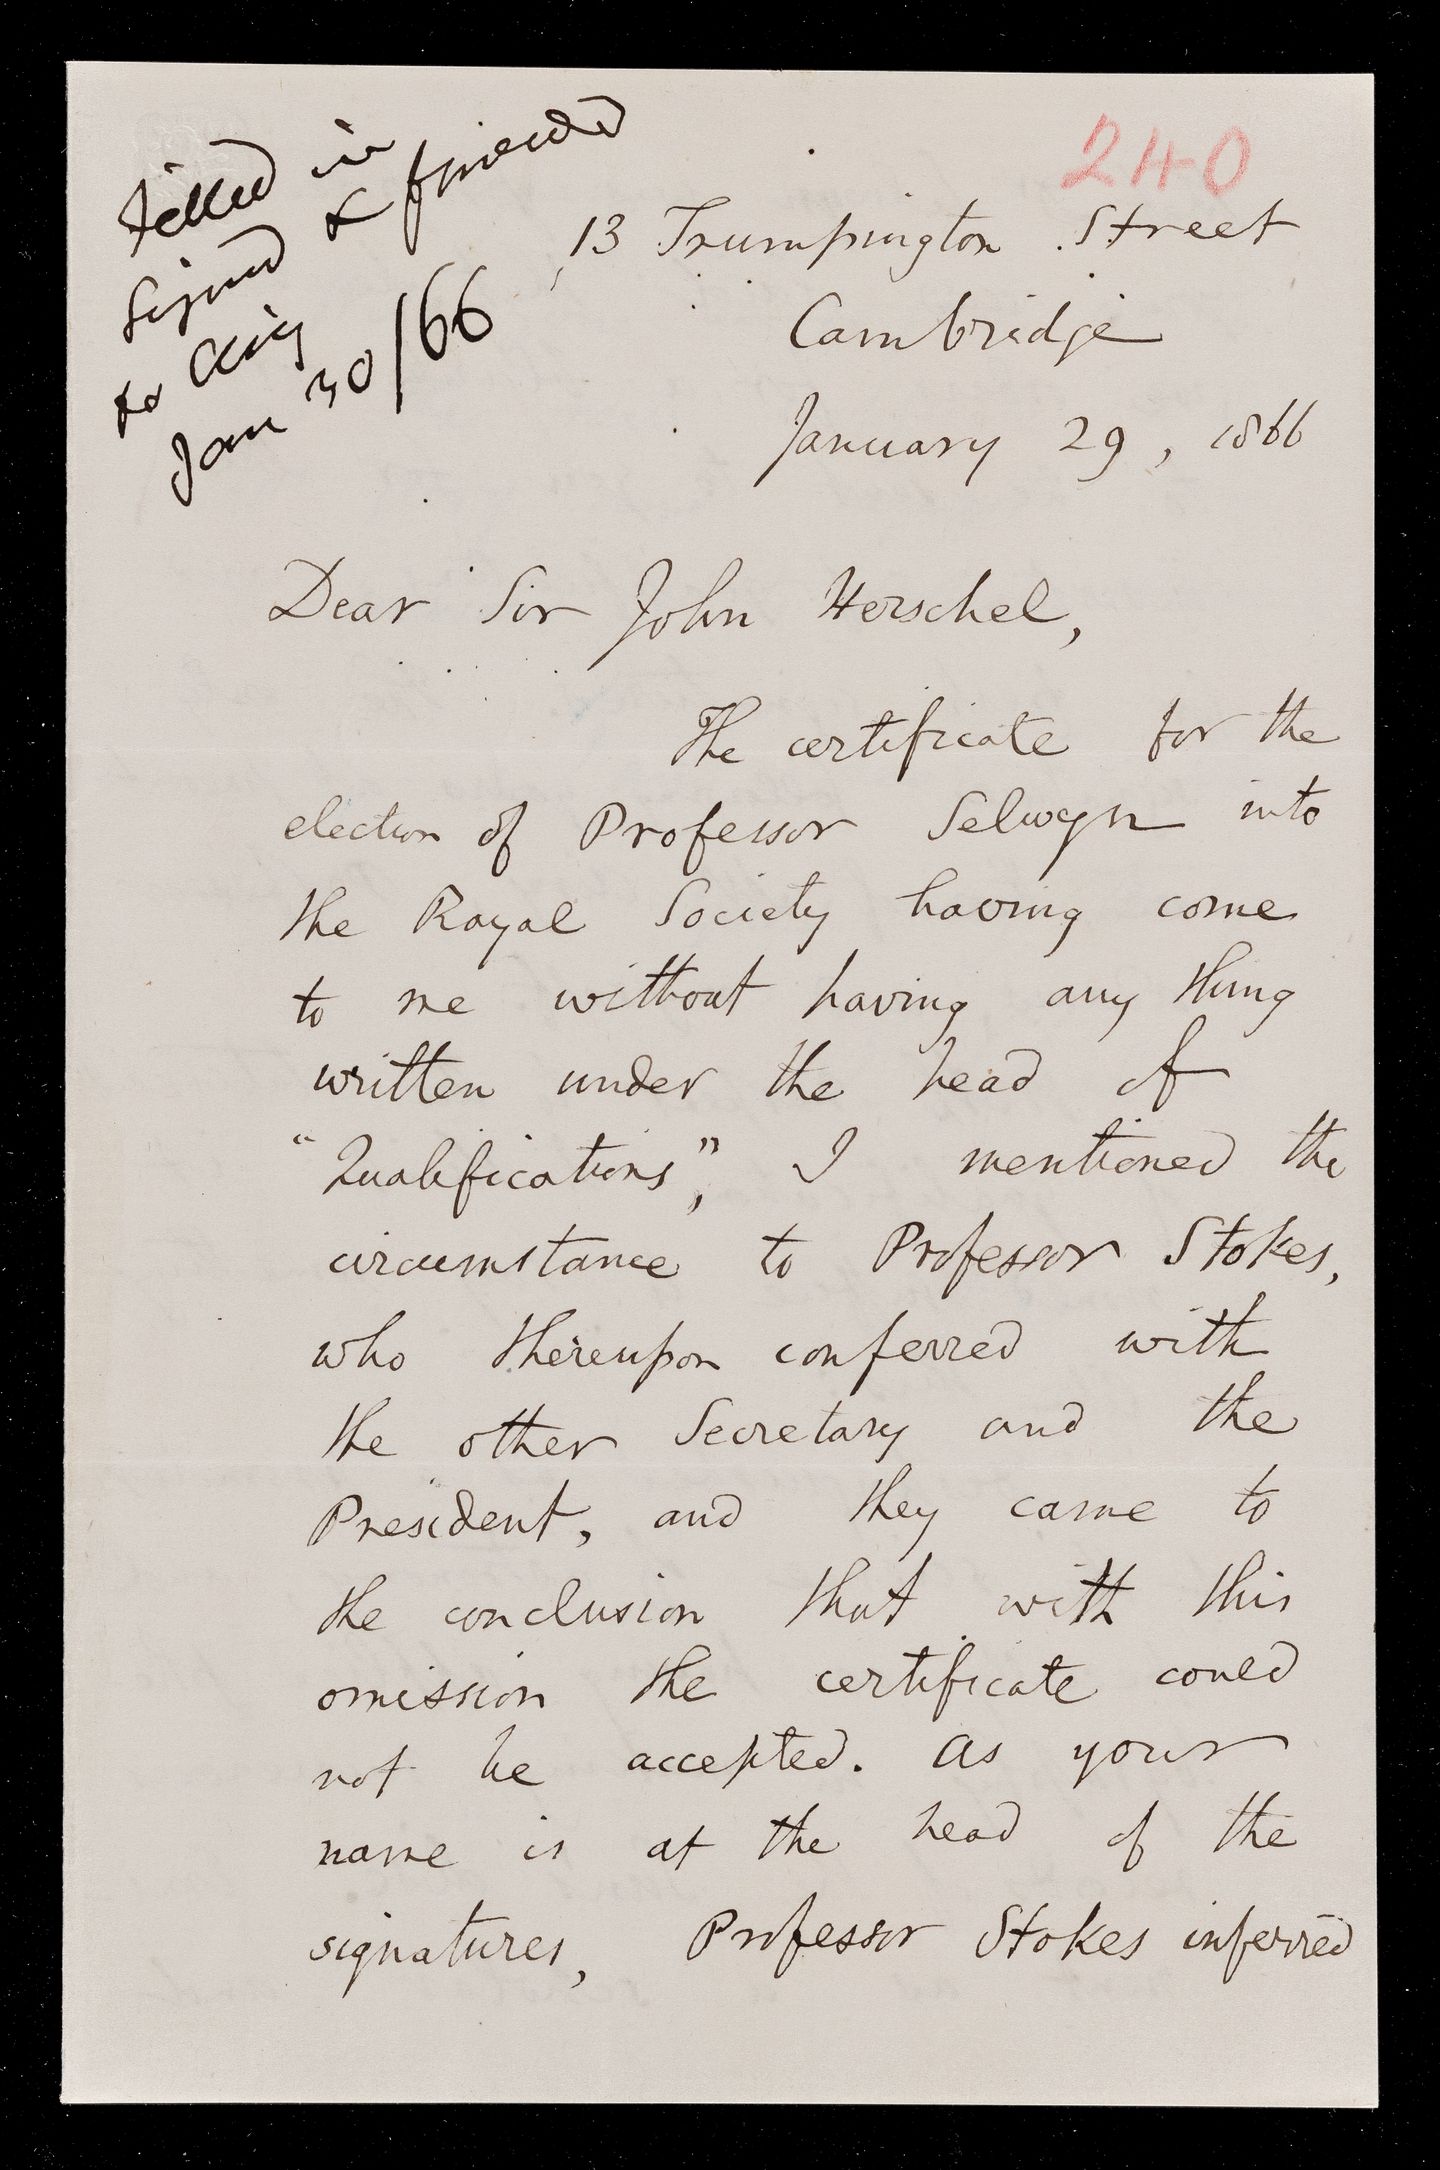 240
Filled in
signed & forwarded
to
Jan 30/66
13 Trumpington Street
Cambridge
January 29, 1866
Dear Sir John Herschel,
The certificate for the
election of Professor Selwyn into
the Royal Society having come
to me without having any thing
written under the head of
"Qualifications", I mentioned the
circumstance to Professor Stokes,
who thereupon conferred with
the other Secretary and the
President, and they came to
the conclusion that with this
omission the certificate could
not be accepted. As your
name is at the head of the
signatures, Professor Stokes inferred